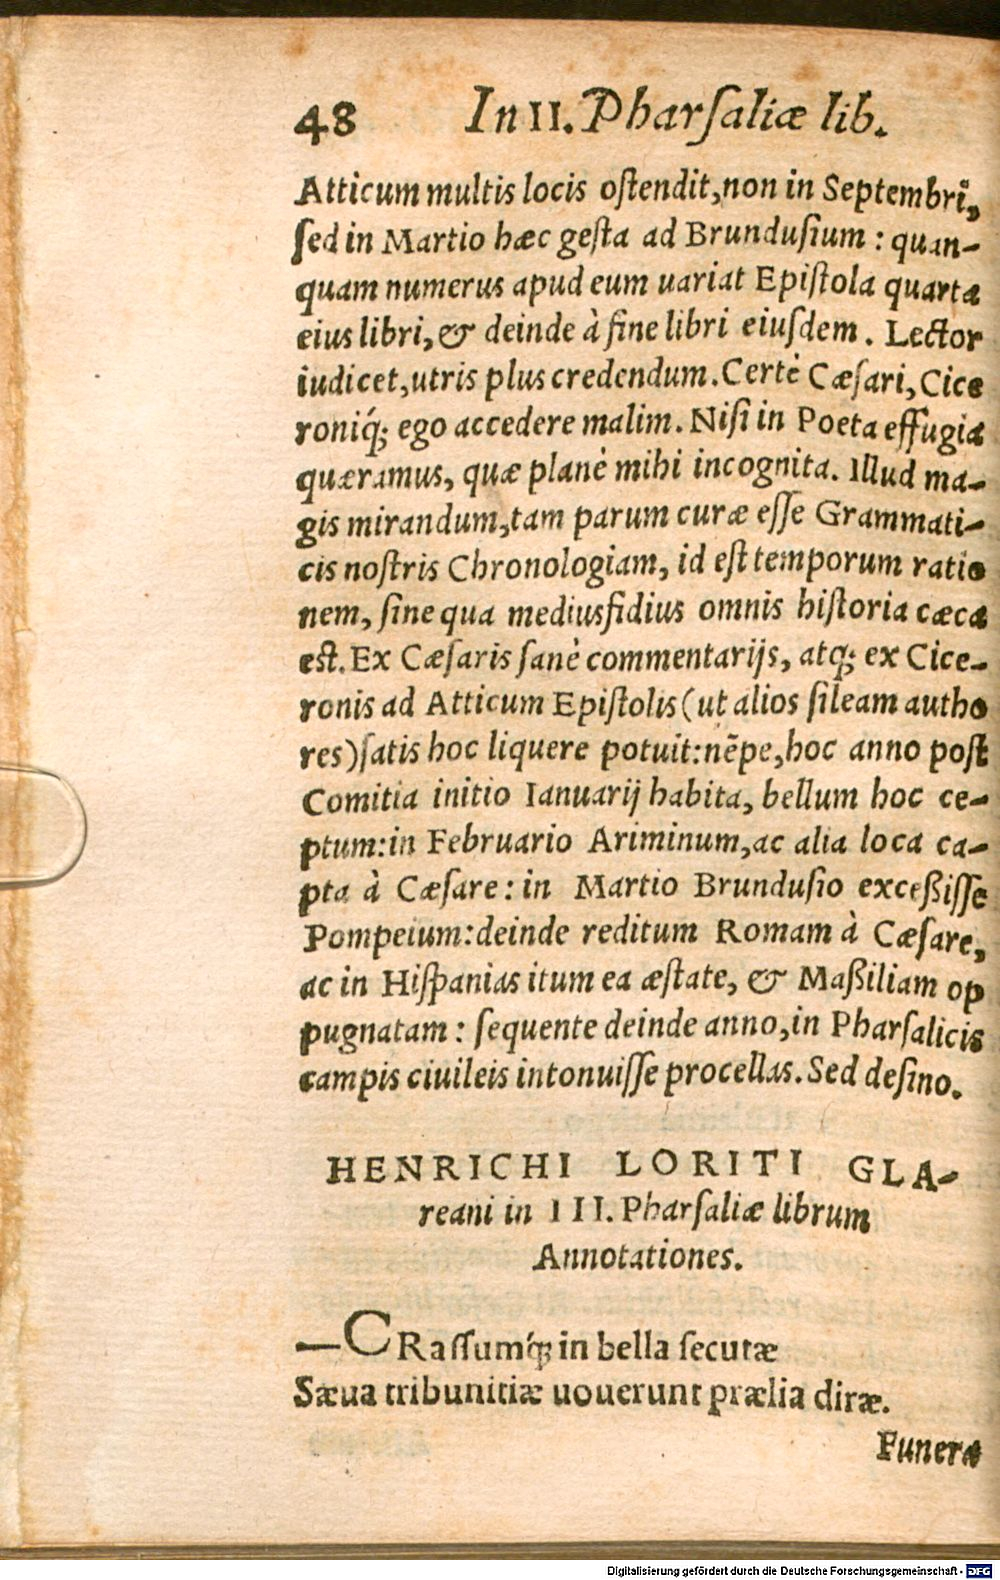 48 In II. Pharſaliæ lib.
Atticum multis locis oſtendit, non in Septembri,
ſed in Martio hæc geſta ad Brunduſium : quan-
quam numerus apud eum uariat Epiſtola quarta
eius libri, & deinde à fine libri eiuſdem. Lector
iudicet, utris plus credendum. Certè Cæſari, Cice
roniq́; ego accedere malim. Niſi in Poeta effugia
quæramus, quæ planè mihi incognita. Illud ma-
gis mirandum, tam parum curæ eſſe Grammati-
cis noſtris Chronologiam, id eſt temporum ratio
nem, ſine qua mediusfidius omnis hiſtoria cæca
eſt. Ex Cæſaris ſanè commentarijs, atq; ex Cice-
ronis ad Atticum Epiſtolis (ut alios ſileam autho
res) ſatis hoc liquere potuit: nẽpe, hoc anno poſt
Comitia initio Ianuarij habita, bellum hoc ce-
ptum: in Februario Ariminum, ac alia loca ca-
pta à Cæſare: in Martio Brunduſio exceßiſſe
Pompeium: deinde reditum Romam à Cæſare,
ac in Hiſpanias itum ea æſtate, & Maßiliam op
pugnatam : ſequente deinde anno, in Pharſalicis
campis ciuileis intonuiſſe procellas. Sed deſino.
HENRICHI LORITI GLA-
reani in III. Pharſaliæ librum
Annotationes.
—CRaſſumq́; in bella ſecutæ
Sæua tribunitiæ uouerunt prælia diræ.
Funera
Digitalisierung gefördert durch die Deutsche Forschungsgemeinschaft - DFG